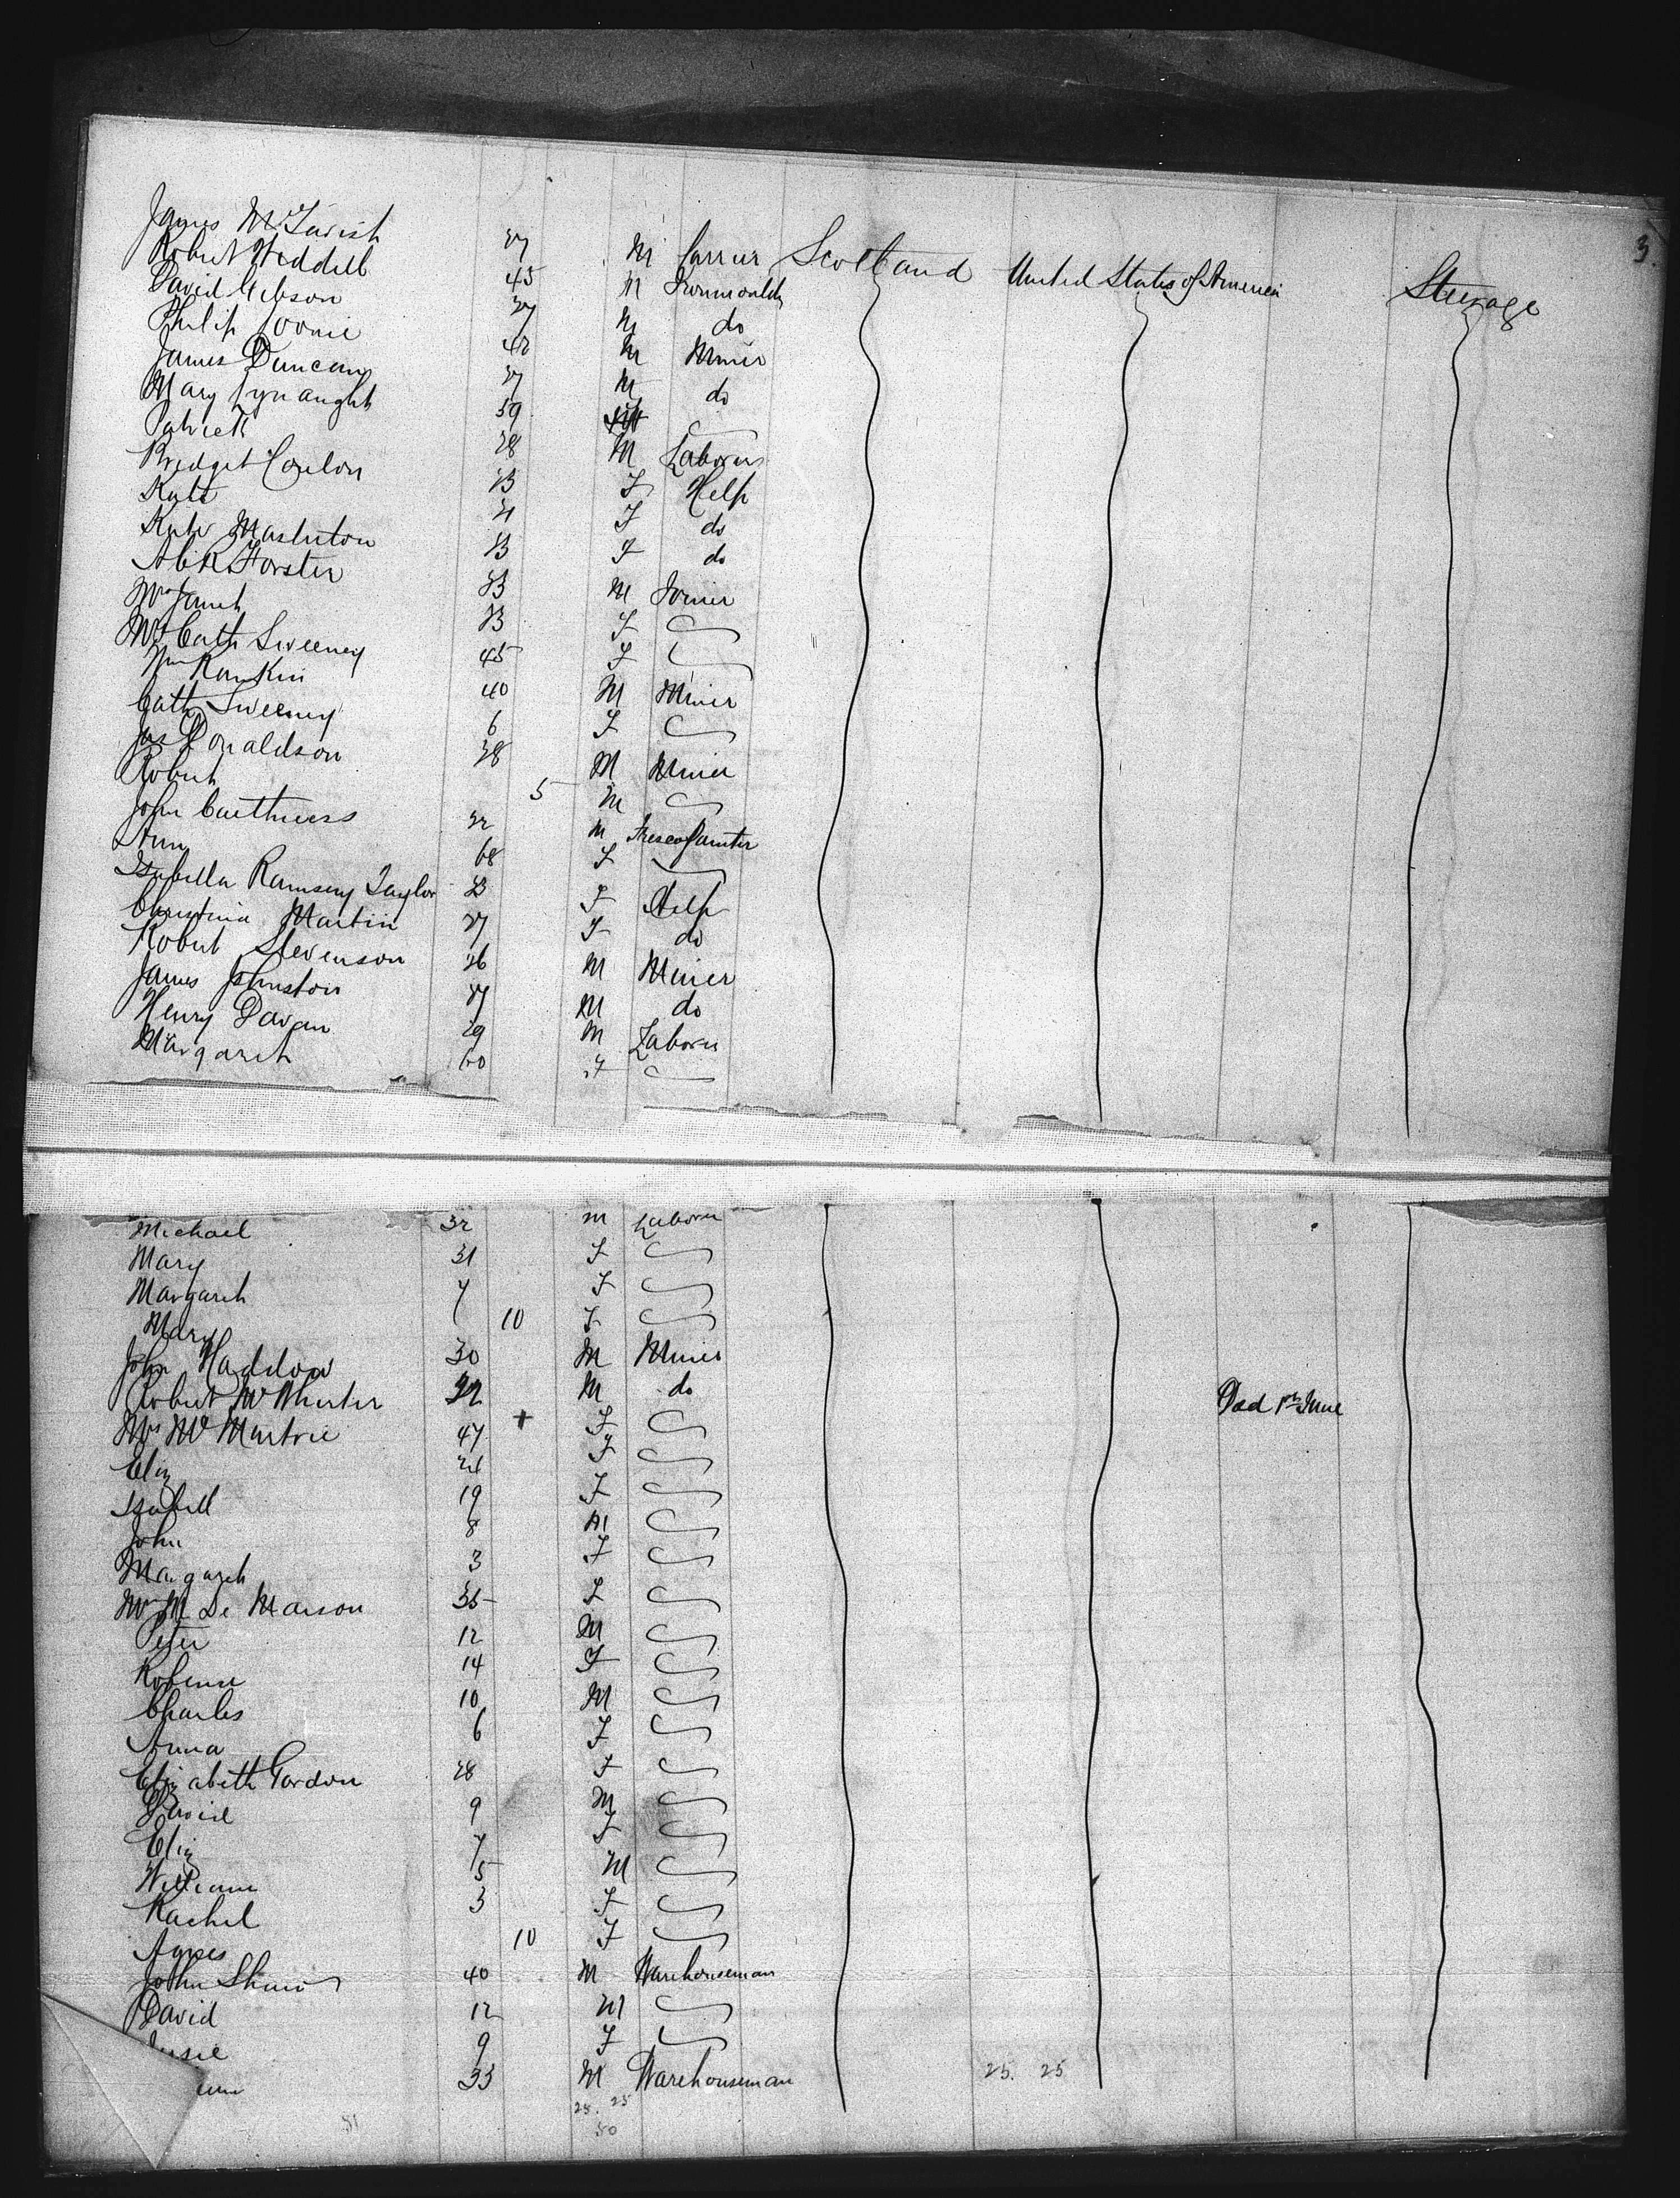 3.
James McTavish 27 M Carrier Scotland United States of America Steerage
Robert Weddell 45 M Ironmoulder
David Gibson 27 M do
Philip 42 M Miner
James Duncan 27 M do
Mary 59
Patrick 28 M Laborer
Bridget Conlon 23 F Help
Kate 21 F do
Kate Masterton 23 F do
Alex Forster 23 M Joiner
Mrs Janet 23 F
Mrs Cath Sweeney 45 F
Wm Rankin 40 M Miner
Cath Sweeney 6 F
Jas Donaldson 28 M Miner
Robert 5 M
John Caithness 22 M Fresco Painter
Ann 68 F
Isabella Ramsay Taylor 23 F Help
Christina Martin 27 F do
Robert Stevenson 26 M Miner
James Johnston 27 M do
Henry Davan 29 M Laborer
Margaret 60 F
Michael 32 M Laborer
Mary 31 F
Margaret 7 F
Mary 10 F
John Haddow 30 M Miner
Robert McWhirter 22 M do
Mrs 47 + F Died 1st June
Eliz 21 F
Isabell 19 F
John 8 M
Margaret 3 F
35 F
Peter 12 M
Robena 14 F
Charles 10 M
Anna 6 F
Elizabeth Gordon 28 F
David 9 M
Eliz 7 F
William 5 M
Rachel 3 F
Agnes 10 F
John Shaw 40 M Warehouseman
David 12 M
9 F
33 M Warehouseman 25. 25
25. 25
50